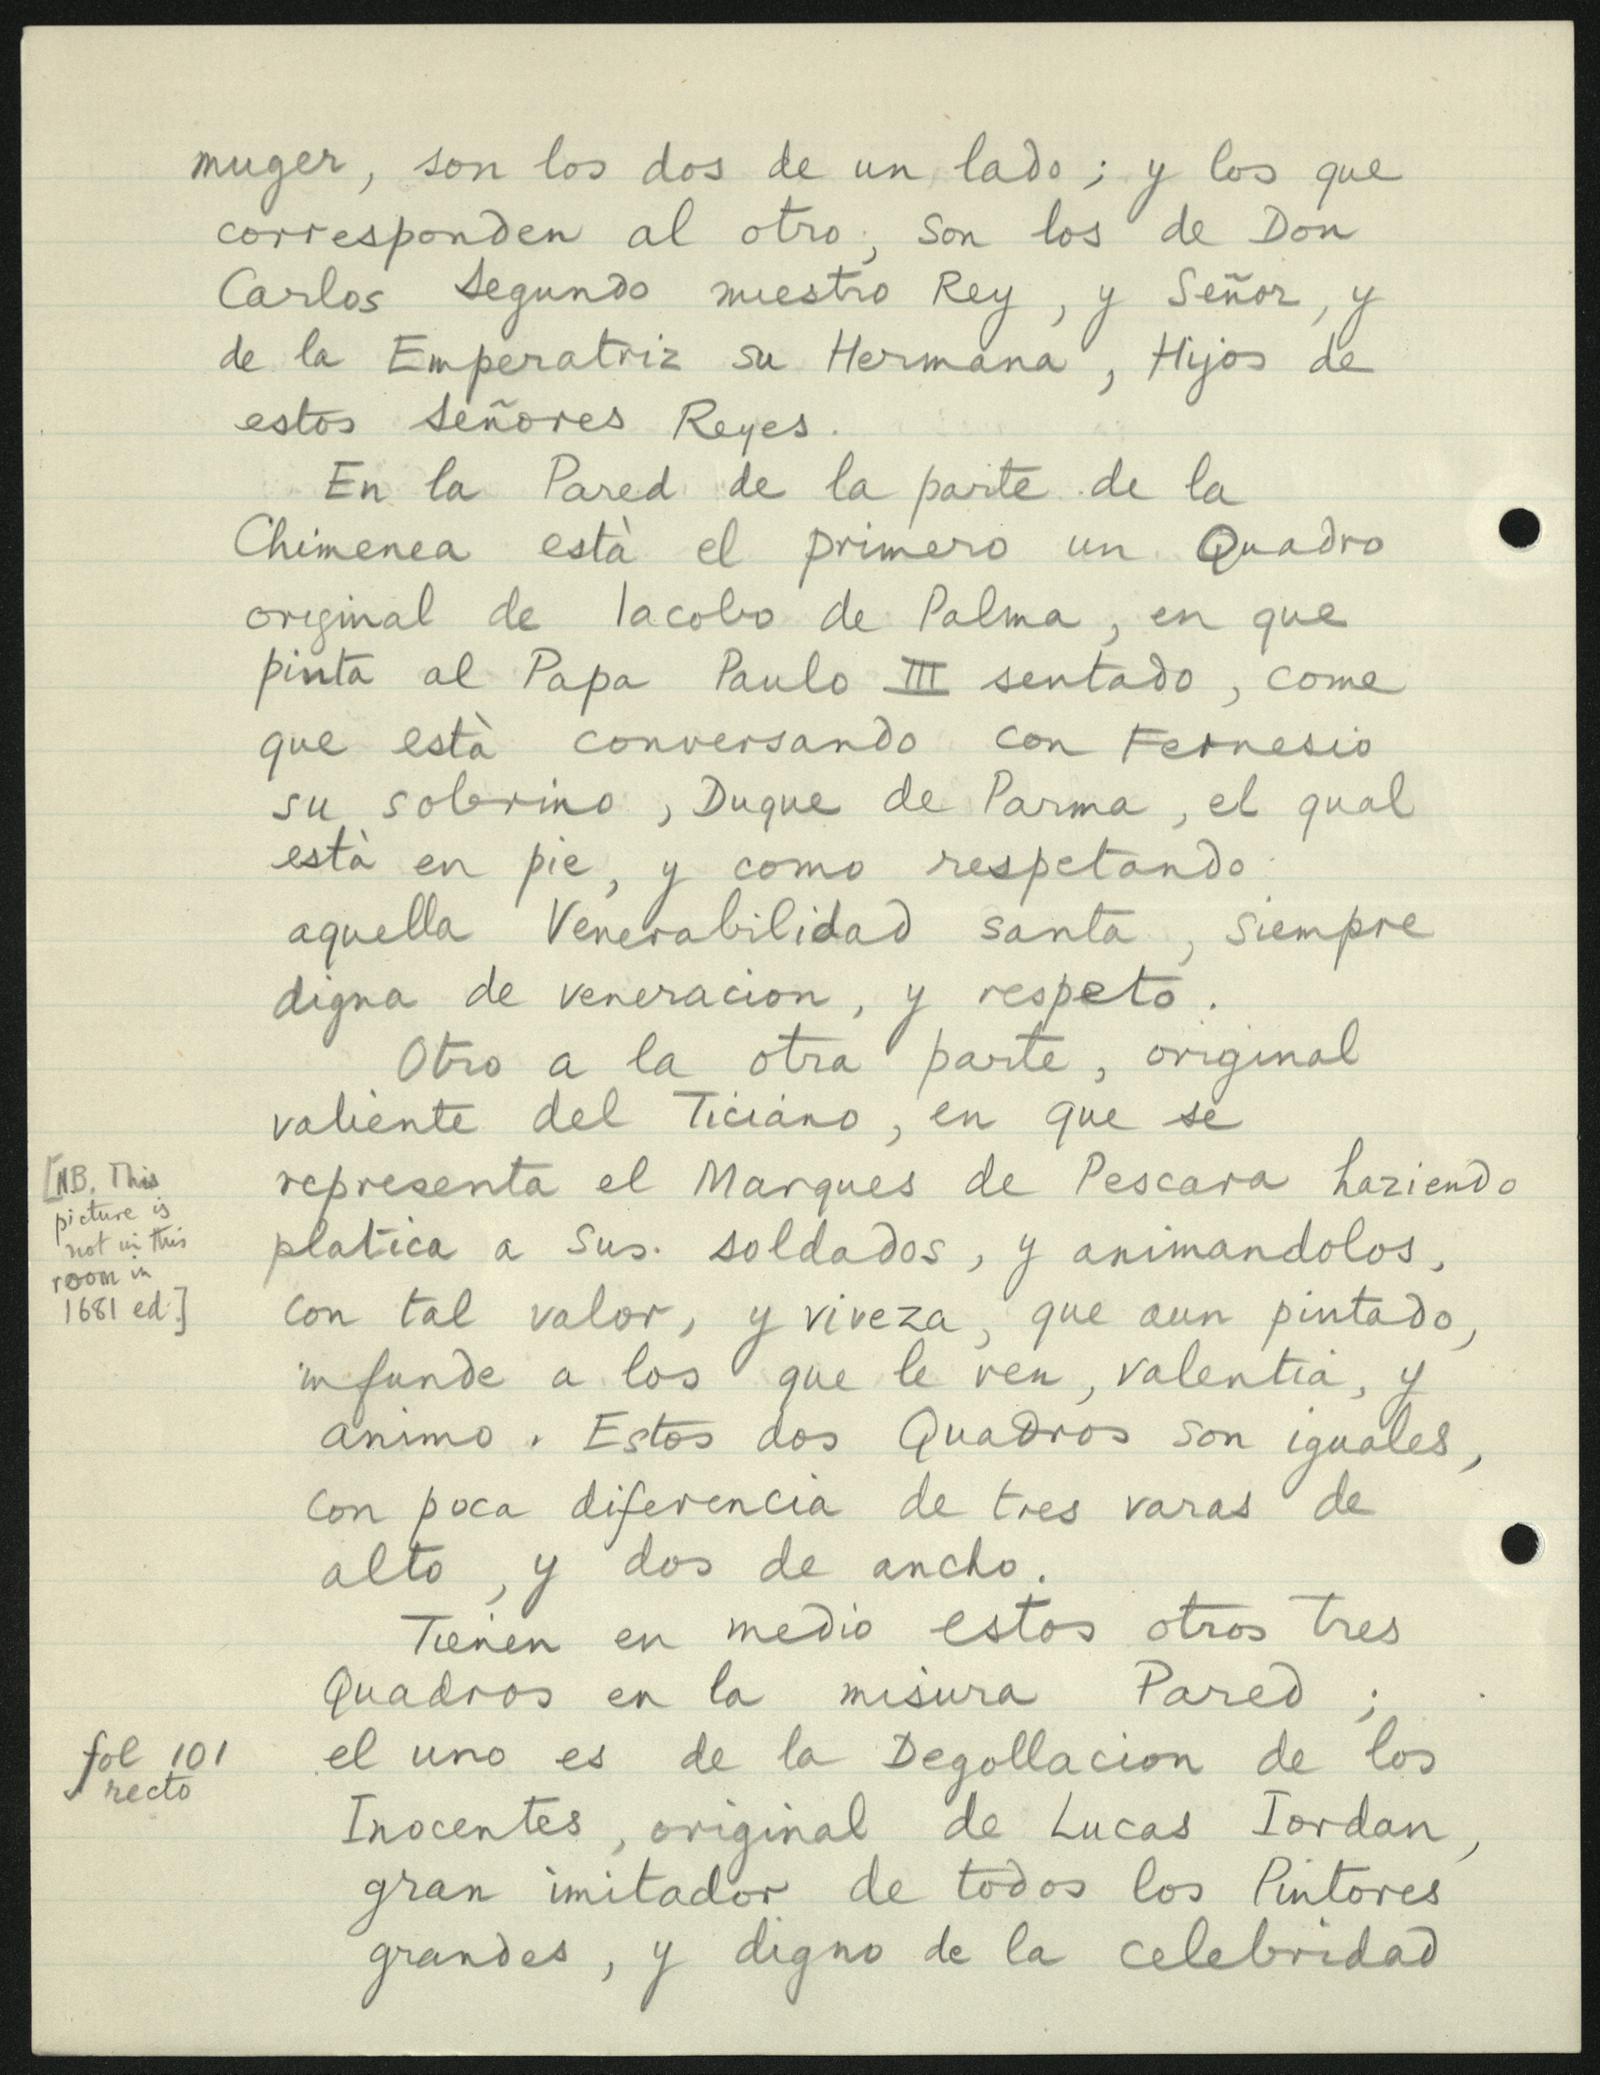 muger, son los dos de un lado; y los que
corresponden al otro, son los de Don
Carlos segundo nuestro Rey, y Señor, y
de la Emperatriz su Hermana, Hijos de
estos señores Reyes.
En la Pared de la parte de la
Chimenea està el primero un Quadro
original de Iacobo de Palma, en que
pinta al Papa Paulo III sentado, come
que està conversando con Fernesio
su sobrino, Duque de Parma, el qual
està en pie, y como respetando
aquella Venerabilidad santa, siempre
digna de veneracion, y respeto.
Otro a la otra parte, original
valiente del Ticiano, en que se
representa el Marques de Pescara haziendo
platica a sus soldados, y animandolos,
con tal valor, y viveza, que aun pintado,
infunde a los que le ven, valentia, y
animo. Estos dos Quadros son iguales,
con poca diferencia de tres varas de
alto, y dos de ancho.
Tienen en medio estos otros tres
Quadros en la misura Pared;
el uno es de la Degollacion de los
Inocentes, original de Lucas Iordan,
gran imitador de todos los Pintores
grandes, y digno de la celebridad
[NB. This
picture is
not in this
room in
1681 ed.]
fol 101
recto